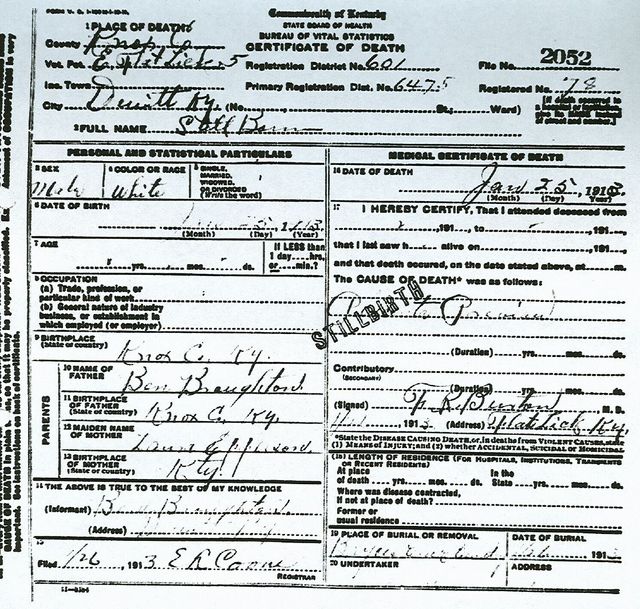 Commonwealth of Kentucky
STATE BOARD OF HEALTH
BUREAU OF VITAL STATISTICS
CERTIFICATE OF DEATH
1 PLACE OF DEATH
County Knox Co
Vot. Pct. E. Flat Lick 5
Registration District No. 601
File No. 2052
Inc. Town
Primary Registration Dist. No. 6475
Registered No. 78
City Dewitt Ky. (No. St.; Ward)
[If death occurred in a hospital or institution, give its NAME instead of street and number.]
2 FULL NAME Still Born
PERSONAL AND STATISTICAL PARTICULARS
3 SEX
Male
4 COLOR OR RACE
White
5 SINGLE, MARRIED, WIDOWED, OR DIVORCED
(Write the word)
6 DATE OF BIRTH
25, 1913
(Month) (Day) (Year)
7 AGE
yrs. mos. ds.
If LESS than 1 day hrs. or min.?
8 OCCUPATION
(a) Trade, profession, or particular kind of work
(b) General nature of industry business, or establishment in which employed (or employer)
9 BIRTHPLACE
(State or country)
Knox Co. Ky.
PARENTS
10 NAME OF FATHER
Ben Broughton
11 BIRTHPLACE OF FATHER
(State or country)
Knox Co. Ky.
12 MAIDEN NAME OF MOTHER
13 BIRTHPLACE OF MOTHER
(State or country)
Ky
14 THE ABOVE IS TRUE TO THE BEST OF MY KNOWLEDGE
(Informant) Ben Broughton
(Address)
15
Filed 1/26, 1913 E R
REGISTRAR
MEDICAL CERTIFICATE OF DEATH
16 DATE OF DEATH
Jan 25, 1913
(Month) (Day) (Year)
17 I HEREBY CERTIFY, That I attended deceased from
, 191 , to , 191 ,
that I last saw h alive on , 191 ,
and that death occurred, on the date stated above, at m.
The CAUSE OF DEATH* was as follows:
STILLBIRTH
(Duration) yrs. mos. ds.
Contributory
(SECONDARY)
(Duration) yrs. mos. ds.
(Signed) F. R. Burton M. D.
191 3 (Address) Flat Lick Ky.
*State the DISEASE CAUSING DEATH, or, in deaths from VIOLENT CAUSES, state (1) MEANS OF INJURY; and (2) whether ACCIDENTAL, SUICIDAL or HOMICIDAL
18 LENGTH OF RESIDENCE (FOR HOSPITALS, INSTITUTIONS, TRANSIENTS OR RECENT RESIDENTS)
At place of death yrs. mos. ds. In the State yrs. mos. ds.
Where was disease contracted, if not at place of death?
Former or usual residence
19 PLACE OF BURIAL OR REMOVAL
DATE OF BURIAL
191
20 UNDERTAKER
ADDRESS